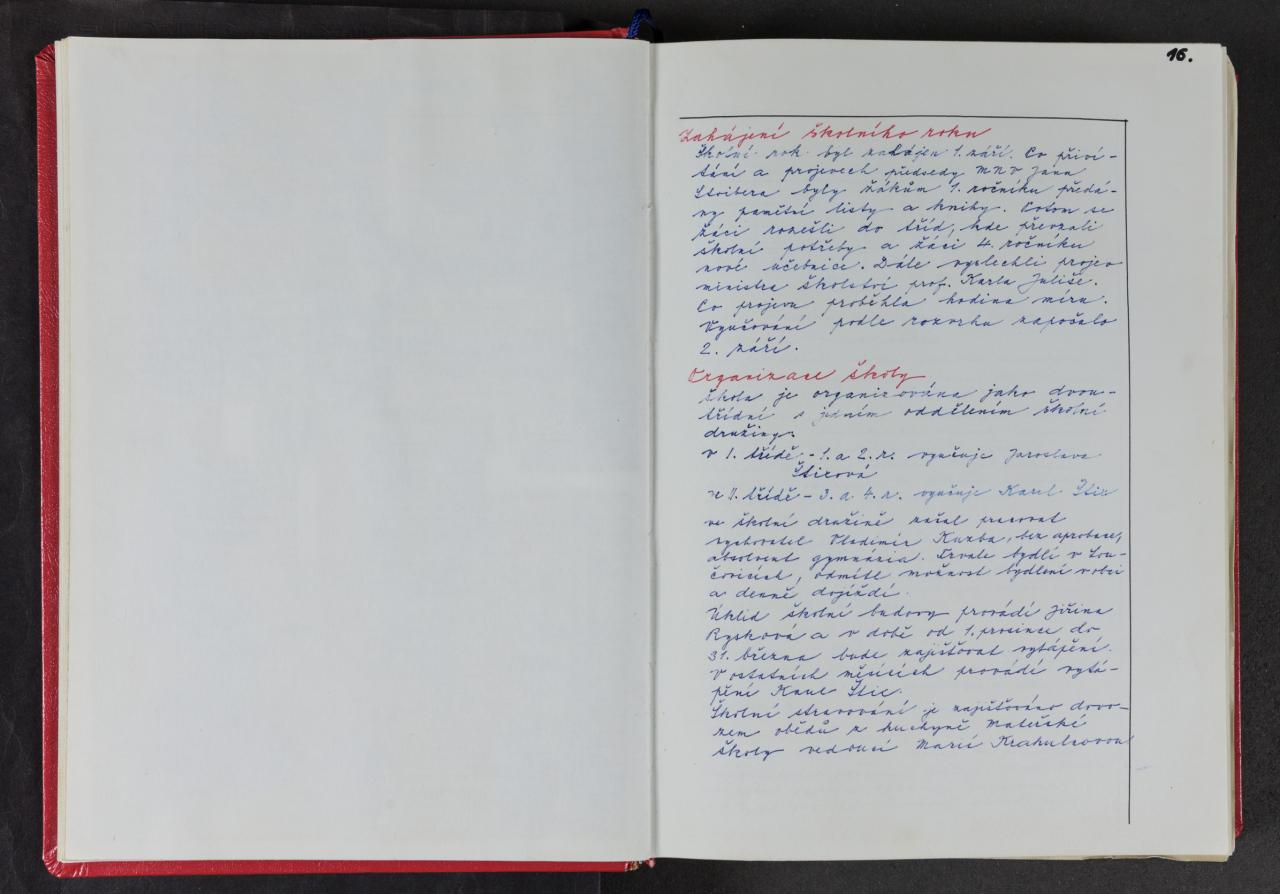 16.
Zahájení školního roku
Školní rok byl zahájen 1. září. Po přiví-
tání a projevech předsedy MNV Jana
Stoibera byly žákům 1. ročníku předá-
ny pamětní listy a knihy. Potom se
žáci rozešli do tříd, kde převzali
školní potřeby a žáci 4. ročníku
nové učebnice. Dále vyslechli projev
ministra školství prof. Karla Juliše.
Po projevu proběhla hodina míru.
Vyučování podle rozvrhu započalo
2. září.
Organizace školy
Škola je organizována jako dvou-
třídní s jedním oddělením školní
družiny.
V I. třídě - 1. a 2. r. vyučuje Jaroslava
Štirová
ve II. třídě - 3. a 4. r. vyučuje Karel Štir
ve školní družině začal pracovat
vychovatel Vladimír Kuzba, bez aprobace,
absolvent gymnázia. Trvale bydlí v Lou-
čovicích, odmítl možnost bydlení v obci
a denně dojíždí.
Úklid školní budovy provádí Jiřina
Rysková a v době od 1. prosince do
31. března bude zajišťovat vytápění.
V ostatních měsících provádí vytá-
pění Karel Štir.
Školní stravování je zajišťováno dovo-
zem obědů z kuchyně Mateřské
školy vedoucí Marií Krahulcovou